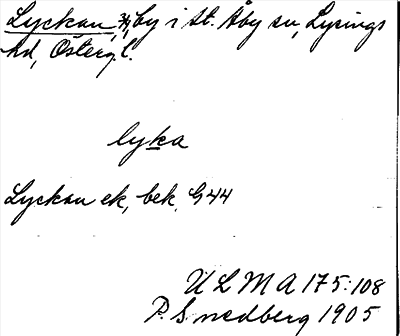 Lyckan, by i St. Åby sn, Lysings
hd, Österg. l.
lyka
Lyckan ek, bek. G44
ULMA 175:108
P. Smedberg 1905